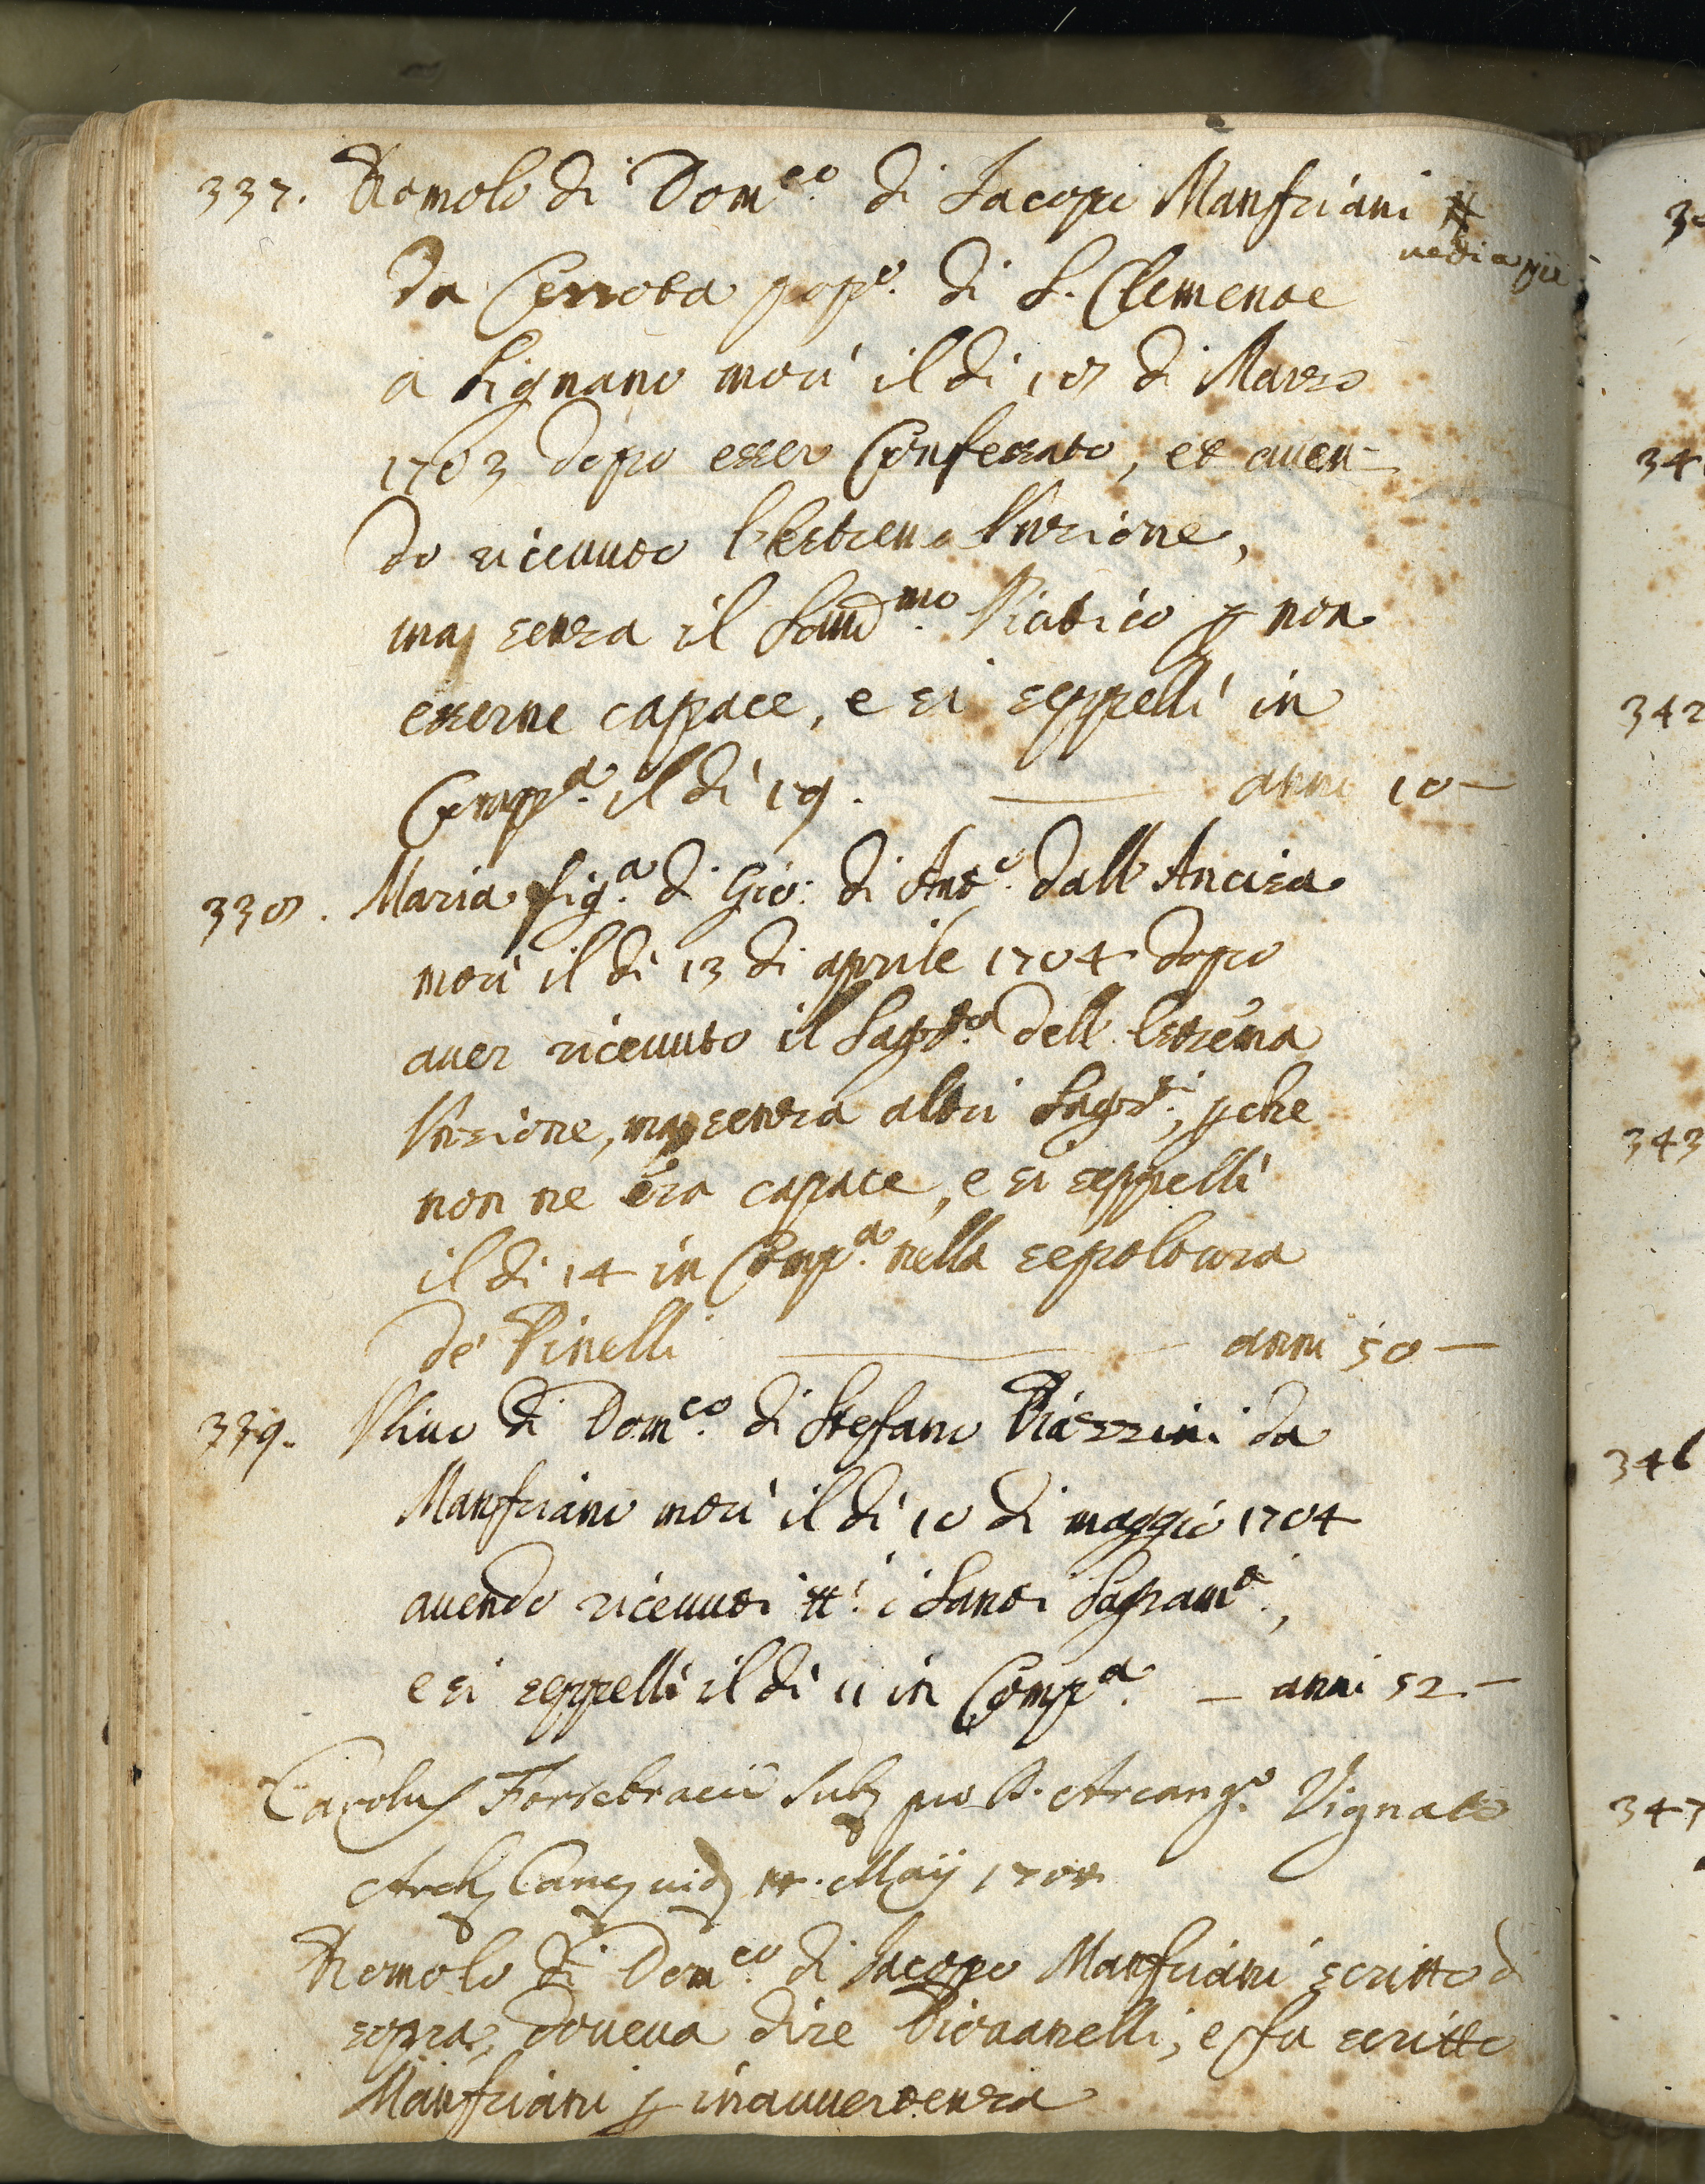 337. Romolo di Dom.co di Jacopo Manfriani #
vedi a piè
da Cerrota pop.o di S. Clemente
a Signano morì il dì 18 di Marzo
1703 dopo esser Confessato, et aven-
do ricevuto l'Estrema Unzione,
ma senza il Sant.mo Viatico p non
esserne capace, e si seppellì in
Comp.a il dì 19. — anni 10 —
338. Maria fig.a di Gio: di Ant.o dall'Ancisa
morì il dì 13 di aprile 1704 dopo
aver ricevuto il Sagr.to dell'Estrema
Unzione, ma senza altri Sagr.ti, pche
non ne era capace, e si seppellì
il dì 14 in Comp.a nella sepoltura
de' Pinelli — anni 50 —
339. Ulivo di Dom.co di Stefano Piazzini da
Manfriano morì il dì 10 di maggio 1704
avendo ricevuti tt.i i Santi Sagram.ti,
e si seppellì il dì 11 in Comp.a — anni 52 —
Carolus Fortebracii Sub pro D. Arcang.o Vignale
Arch Canc vid May 1704
Romolo di Dom.co di Jacopo Manfriani scritto di
sopra, doveva dire Piovanelli, e fu scritto
Manfriani p inavvertenza
34
342
343
347